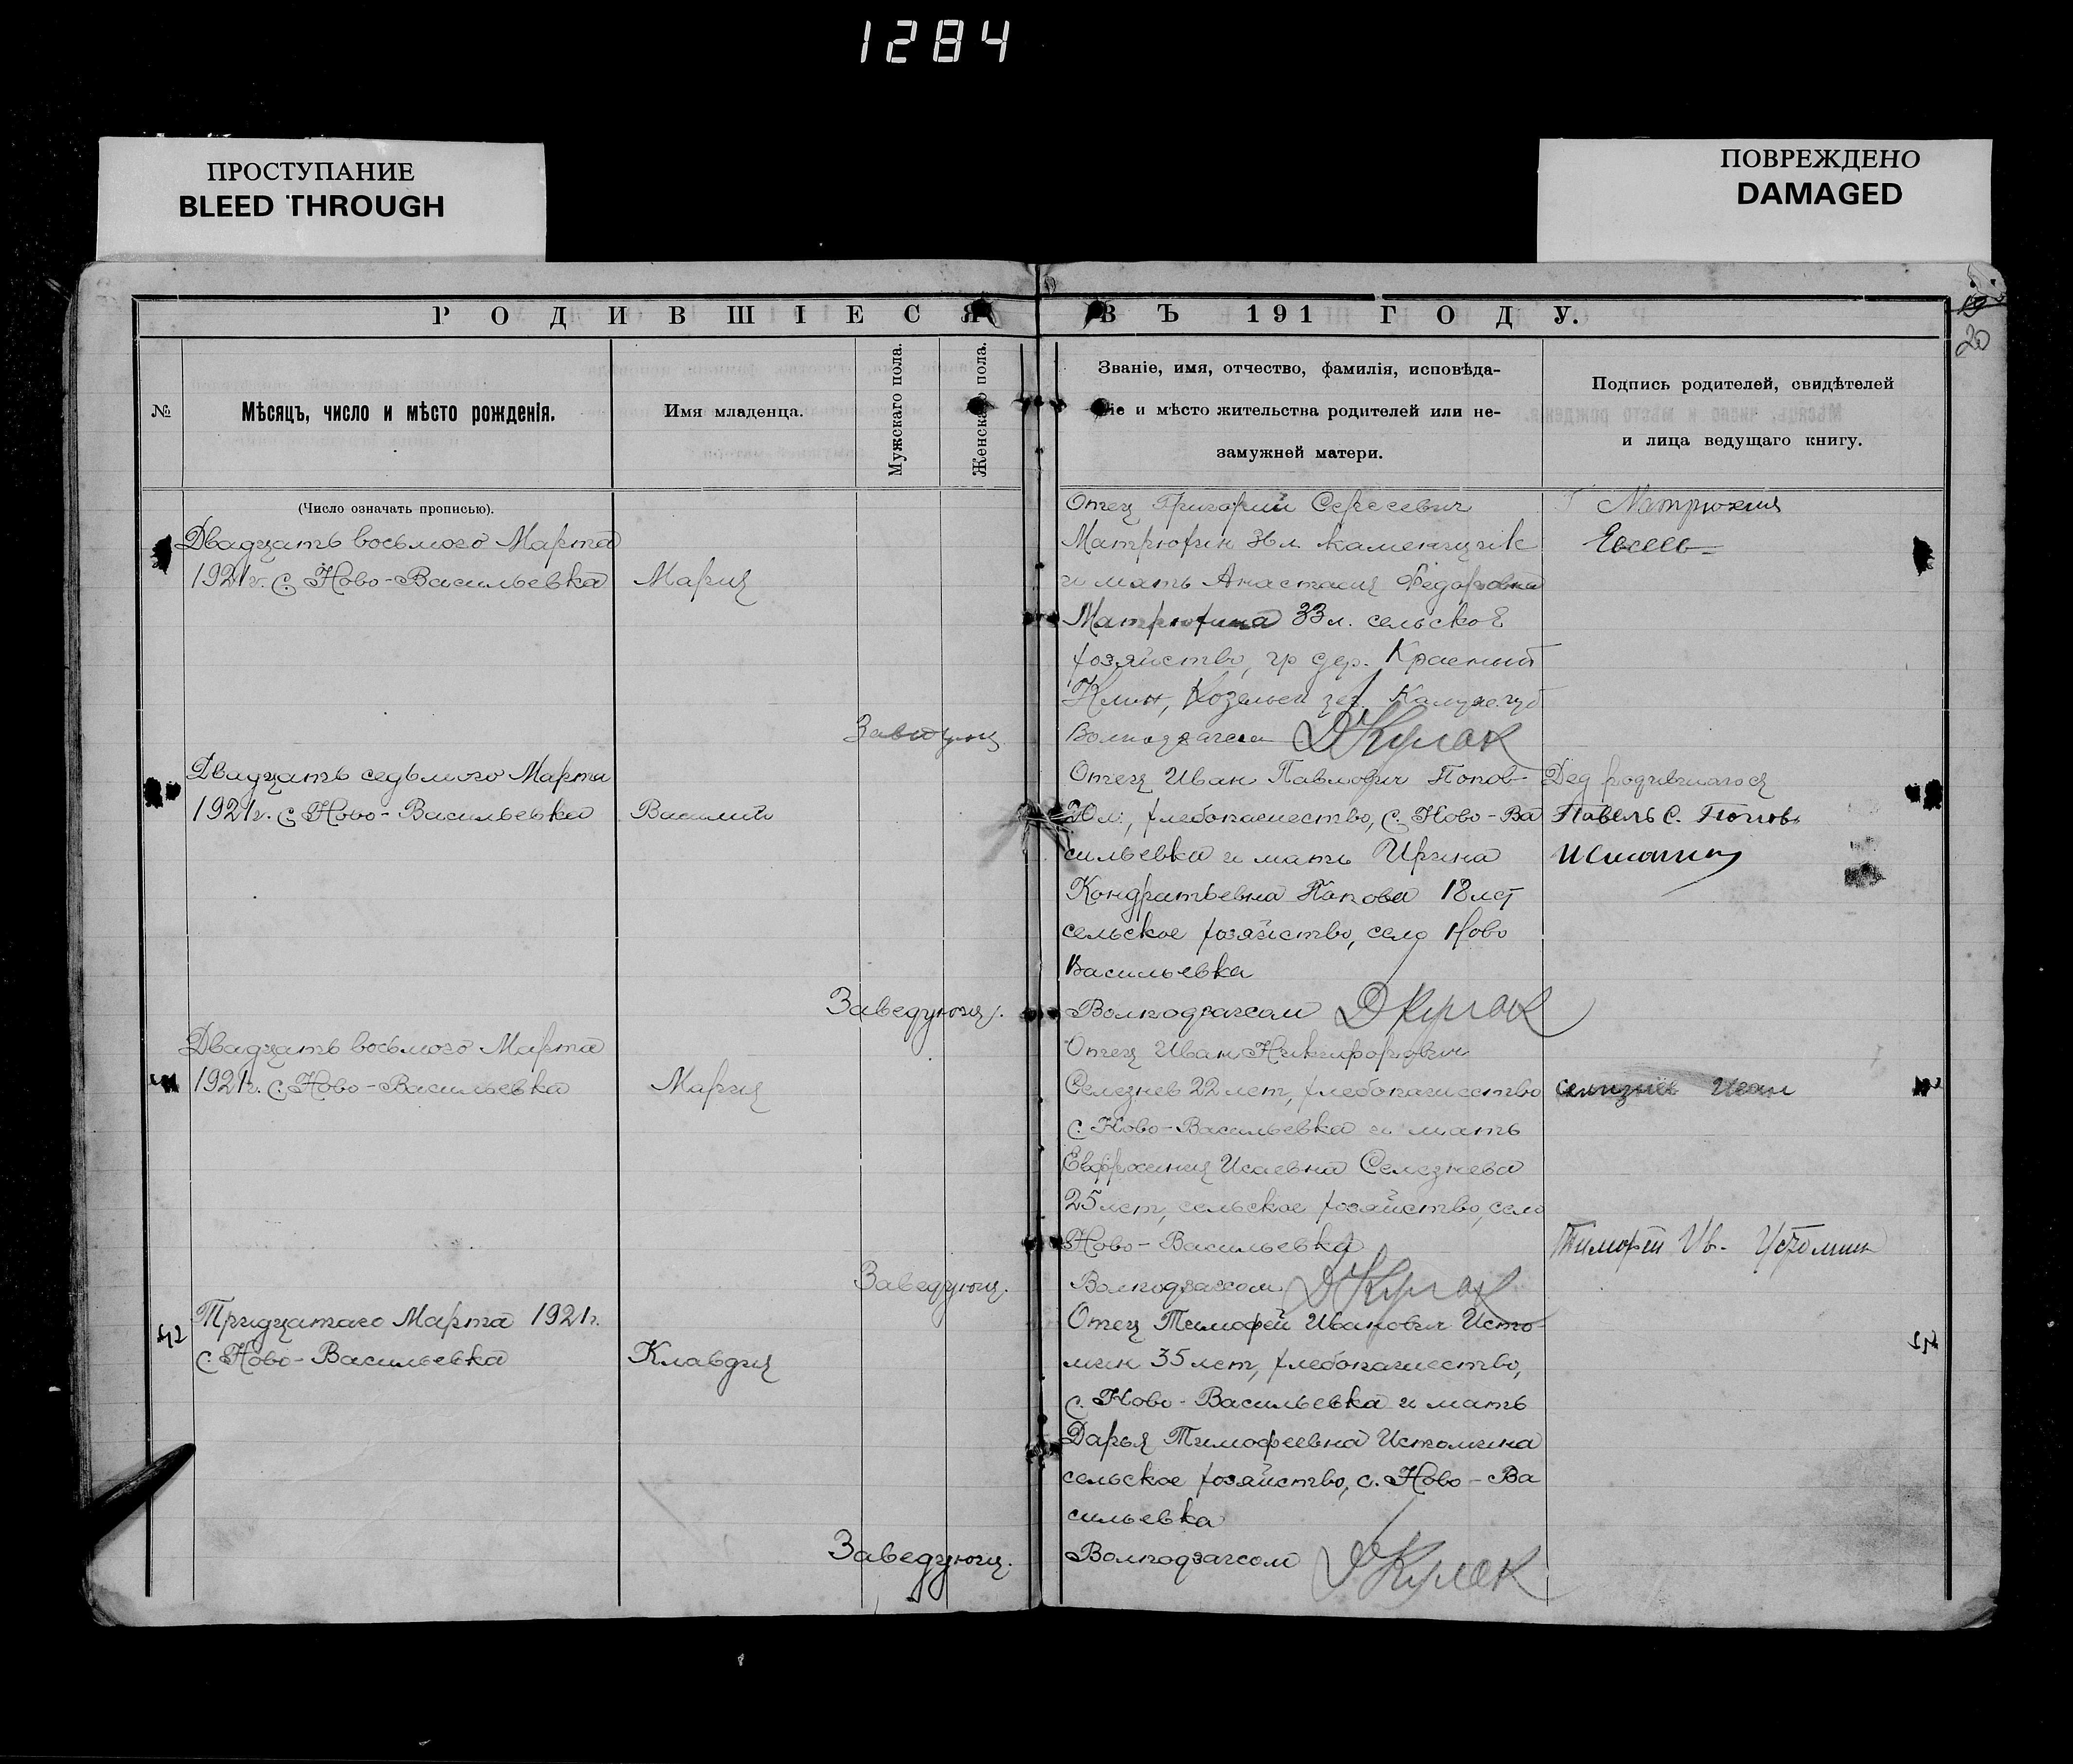 1284
ПРОСТУПАНИЕ
BLEED THROUGH
ПОВРЕЖДЕНО
DAMAGED
РОДИВШІЕСЯ ВЪ 191 ГОДУ.
20
№
Мѣсяцъ, число и мѣсто рожденія.
Имя младенца.
Мужскаго пола.
Женскаго пола.
Званіе, имя, отчество, фамилія, исповѣда-
ніе и мѣсто жительства родителей или не-
замужней матери.
Подпись родителей, свидѣтелей
и лица ведущаго книгу.
(Число означать прописью).
Двадцать восьмого Марта
1921г. с. Ново-Васильевка
Мария
Отец Григорий Сергеевич
Матрюхин 38л. каменщик
и мать Анастасия Федоровна
Матрюхина 33л. сельское
хозяйство, гр дер. Красный
Клин, Козельск уез. Калуж. губ
Заведующ
Волподзагсом ДКулак
Г Матрюхин
Евсеев
Двадцать седьмого Марта
1921г. с. Ново-Васильевка
Василий
Отец Иван Павлович Попов
л., хлебопашество, с. Ново-Ва
сильевка и мать Ирина
Кондратьевна Попова 18 лет
сельское хозяйство, село Ново
Васильевка
Заведующ.
Волподзагсом ДКулак
Дед родившагося
Павелъ С. Поповъ
Двадцать восьмого Марта
1921г. с. Ново-Васильевка
Мария
Отец Иван Никифорович
Селезнев 22 лет, хлебопашество
с. Ново-Васильевка и мать
Евфросиния Исаевна Селезнева
25 лет, сельское хозяйство, село
Ново-Васильевка
Заведующ.
Волподзагсом ДКулак
Селизнев Иван
Тимофей Ив. Устомин
42
Тридцатаго Марта 1921г.
с. Ново-Васильевка
Клавдия
Отец Тимофей Иванович Исто-
мин 35 лет, хлебопашество,
с. Ново-Васильевка и мать
Дарья Тимофеевна Истомина
сельское хозяйство, с. Ново-Ва
сильевка
Заведующ.
Волподзагсом ДКулак